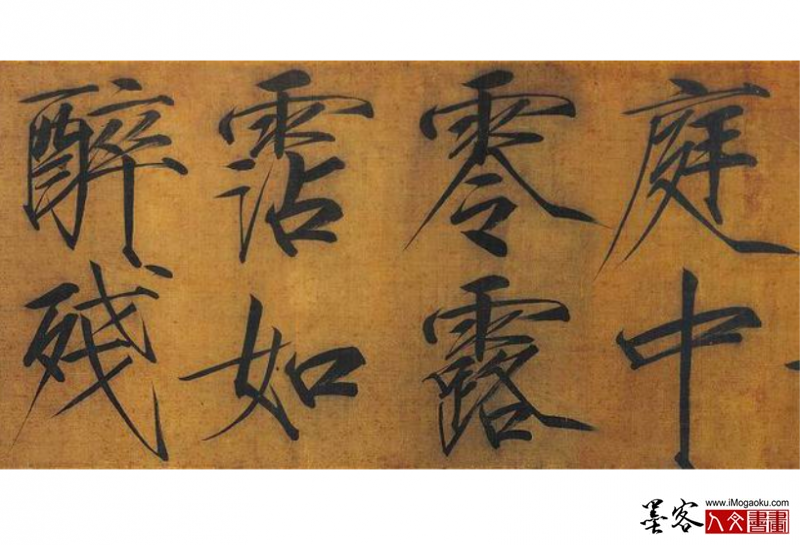 庭中
零露
霑如
醉殘
www.iMogaoku.com
墨客
人文書畫